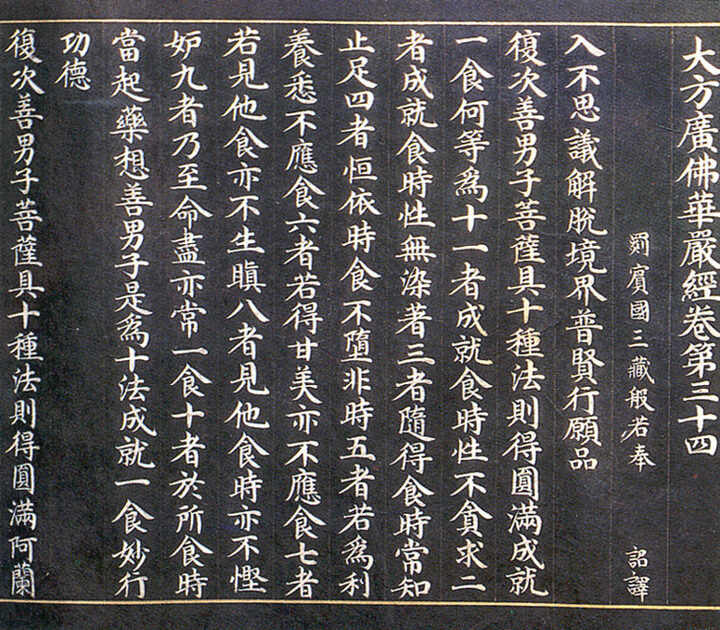 大方廣佛華嚴經卷第三十四
罽賓國三藏般若奉 詔譯
入不思議解脫境界普賢行願品
復次善男子菩薩具十種法則得圓滿成就
一食何等爲十一者成就食時性不貪求二
者成就食時性無染著三者隨得食時常知
止足四者恒依時食不墮非時五者若爲利
養悉不應食六者若得甘美亦不應食七者
若見他食亦不生瞋八者見他食時亦不慳
妒九者乃至命盡亦常一食十者於所食時
當起藥想善男子是爲十法成就一食妙行
功德
復次善男子菩薩具十種法則得圓滿阿蘭